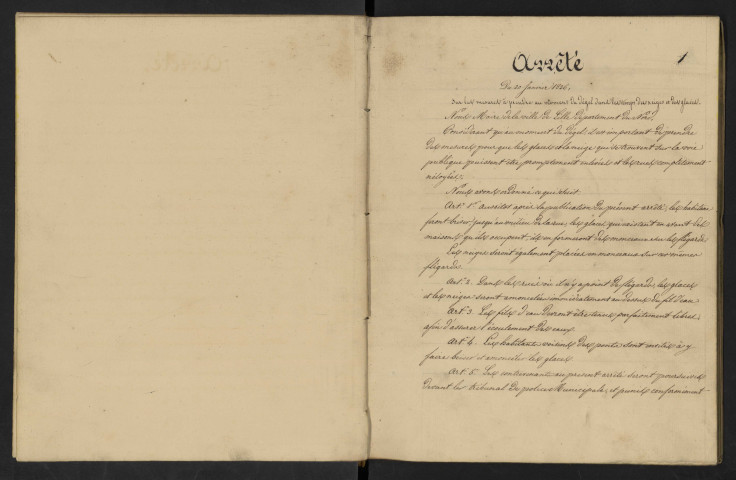 Arrêté
1
Du 20 Janvier 1826.
Sur les mesures à prendre au moment du dégel dans les temps des neiges et des glaces.
Nous Maire de la ville de Lille Département du Nord,
Considérant qu'au moment du dégel, il est important de prendre
des mesures pour que les glaces et la neige qui se trouvent sur la voie
publique puissent être promptement enlevées et les rues complètement
nétoyées.
Nous avons ordonné ce qui suit
Art. 1er aussitôt après la publication du présent arrêté, les habitans
feront briser jusqu'au milieu de la rue, les glaces qui existent en avant des
maisons qu'ils occupent; ils en formeront des monceaux sur les flégards.
Les neiges seront également placées en monceaux sur ces mêmes
flégards.
Art. 2. Dans les rues où il n'y a point de flégards, les glaces
et les neiges seront amoncelées immédiatement au dessus du fil d'eau
Art. 3. Les fils d'eau devront être tenus parfaitement libres,
afin d'assurer l'écoulement des eaux.
Art. 4. Les habitans voisins des ponts sont invités à y
faire briser et amonceler les glaces
Art. 5. Les contrevenans au présent arrêté seront poursuivis
devant le tribunal de police Municipale, et punis conformément